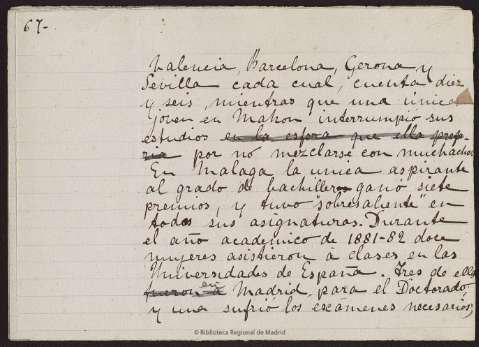 67-
Valencia, Barcelona, Gerona, y
Sevilla cada cual, cuenta diez
y seis, mientras que una única
joven en Mahon interrumpió sus
estudios en la esfera que ella prefe-
ria por no mezclarse con muchachos
En Málaga la unica aspirante
al grado de bachiller ganó siete
premios, y tuvo "sobresaliente" en
todas sus asignaturas. Durante
el año academico de 1881-82 doce
mujeres asistieron á clases en las
Universidades de España. Tres de ellas
fueron á en Madrid para el Doctorado
y una sufrió los exámenes necesarios,
© Biblioteca Regional de Madrid